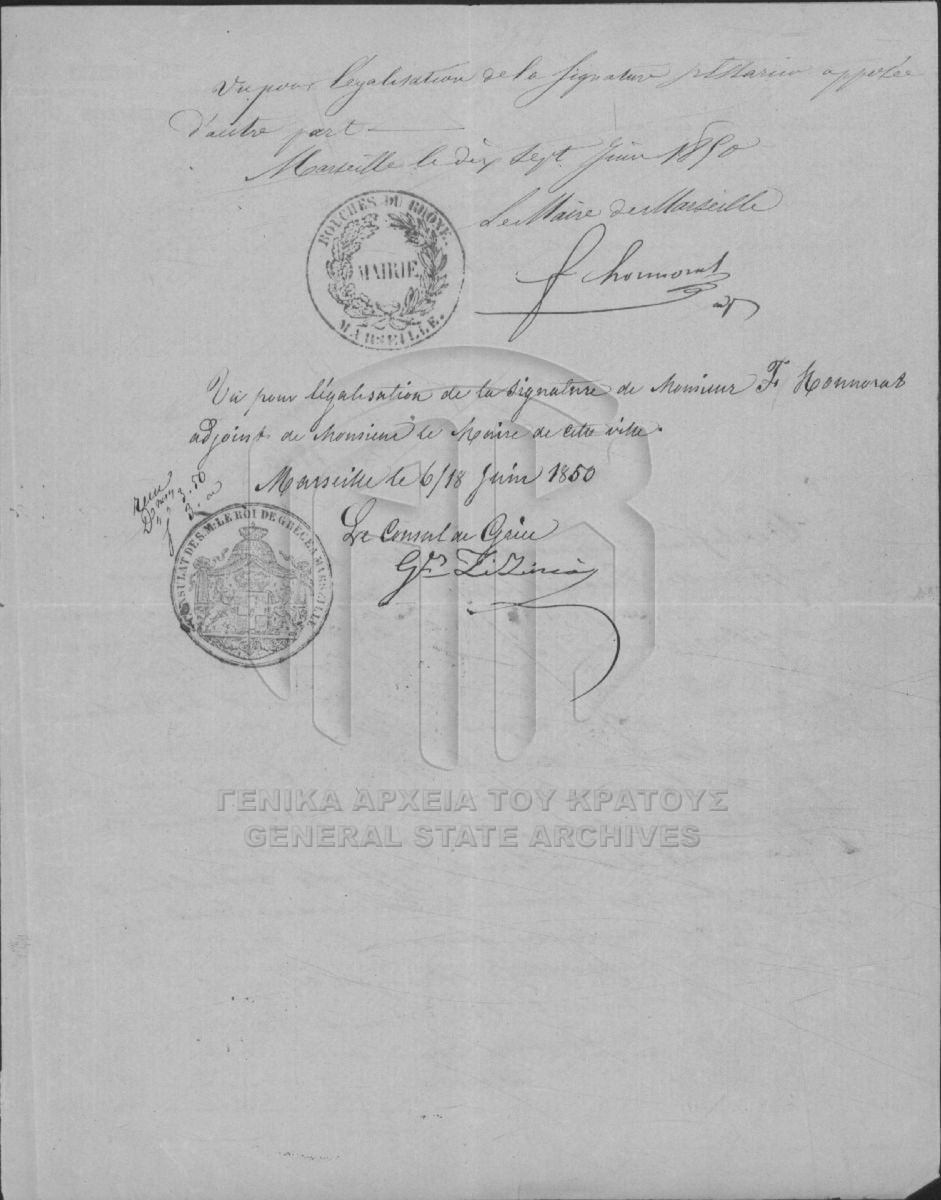 Vu pour légalisation de la signature apposée
d'autre part
Marseille le dix sept Juin 1850
Le Maire de Marseille
BOUCHES DU RHÔNE.
MAIRIE
MARSEILLE.
f honnorat
Vu pour légalisation de la signature de Monsieur F. Honnorat
adjoint de Monsieur le Maire de cette ville.
Marseille le 6/18 Juin 1850
3.50
CONSULAT DE S.M. LE ROI DE GRÈCE A MARSEILLE
Le Consul de Grèce
ΓΕΝΙΚΑ ΑΡΧΕΙΑ ΤΟΥ ΚΡΑΤΟΥΣ
GENERAL STATE ARCHIVES